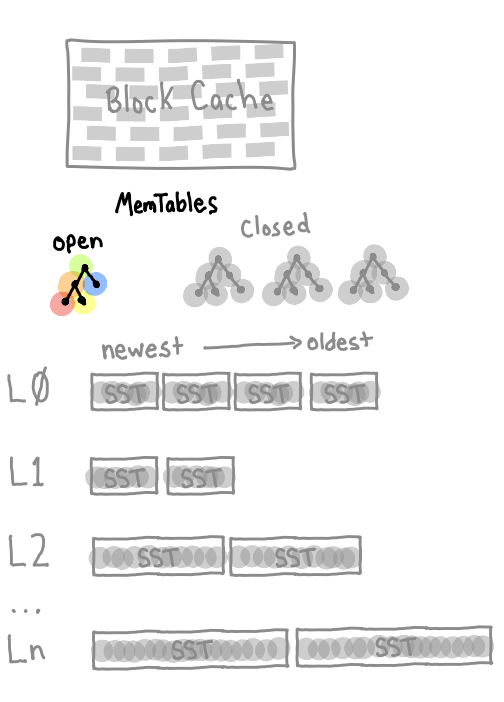 Block Cache
MemTables
open
Closed
newest oldest
LØ SST SST SST SST
L1 SST SST
L2 SST SST
...
Ln SST SST